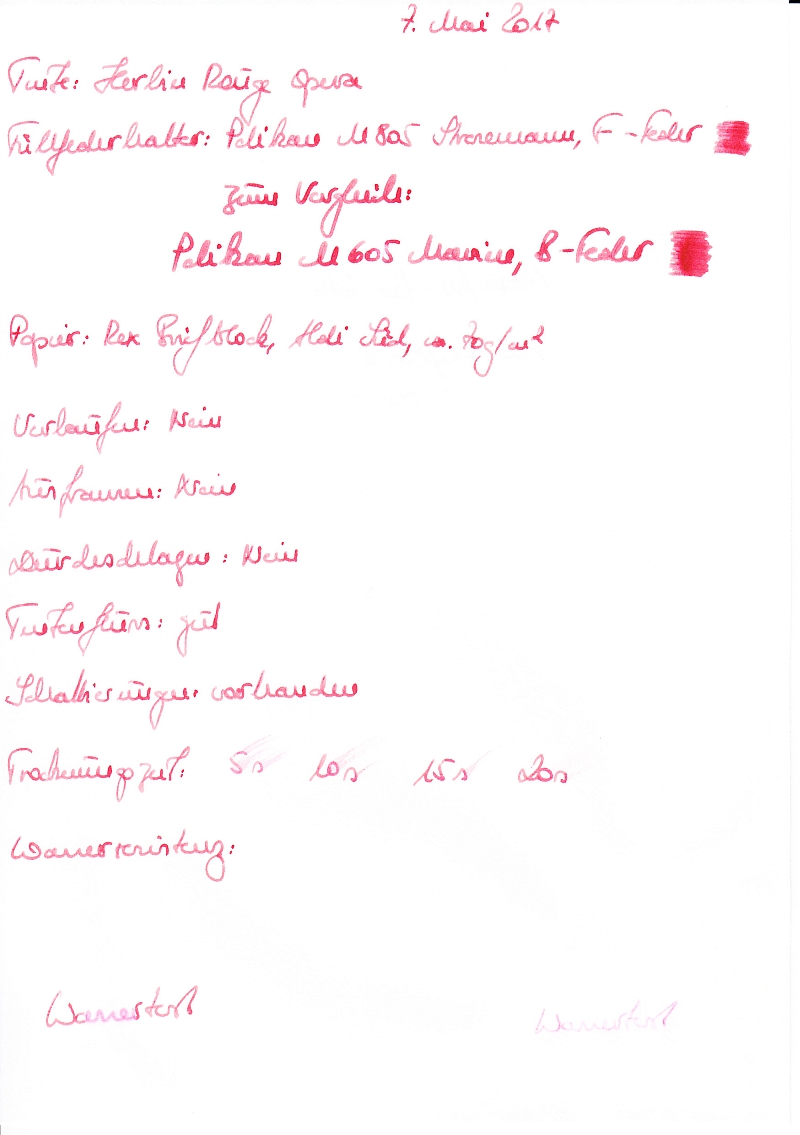 7. Mai 2017
Tinte: Herbin Rouge Opera
Füllfederhalter: Pelikan M805 Stresemann, F-Feder
Zum Vergleich:
Pelikan M605 Marine, B-Feder
Papier: Rex Briefblock, Aldi Süd, ca. 70g/m²
Verlaufen: Nein
Ausfransen: Nein
Durchschlagen: Nein
Tintenfluss: gut
Schattierungen: vorhanden
Trocknungszeit: 5s 10s 15s 20s
Wasserresistenz:
Wassertest Wassertest